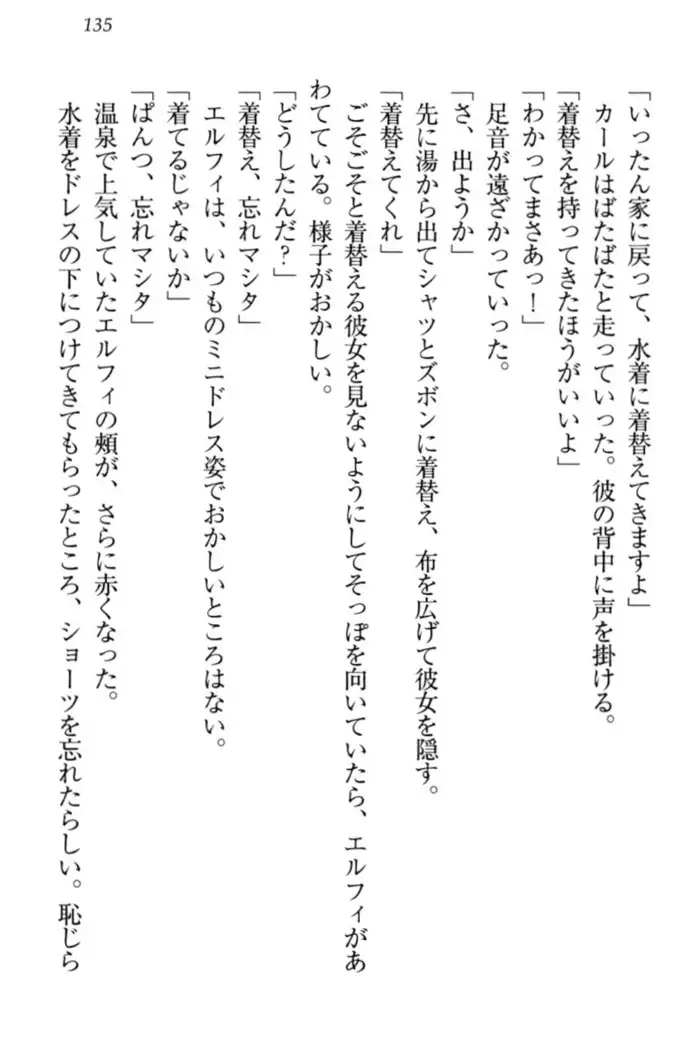 135
「いったん家に戻って、水着に着替えてきますよ」
カールはばたばたと走っていった。彼の背中に声を掛ける。
「着替えを持ってきたほうがいいよ」
「わかってまさあっ！」
足音が遠ざかっていった。
「さ、出ようか」
先に湯から出てシャツとズボンに着替え、布を広げて彼女を隠す。
「着替えてくれ」
ごそごそと着替える彼女を見ないようにしてそっぽを向いていたら、エルフィがあ
わてている。様子がおかしい。
「どうしたんだ？」
「着替え、忘れマシタ」
エルフィは、いつものミニドレス姿でおかしいところはない。
「着てるじゃないか」
「ぱんつ、忘れマシタ」
温泉で上気していたエルフィの頰が、さらに赤くなった。
水着をドレスの下につけてきてもらったところ、ショーツを忘れたらしい。恥じら